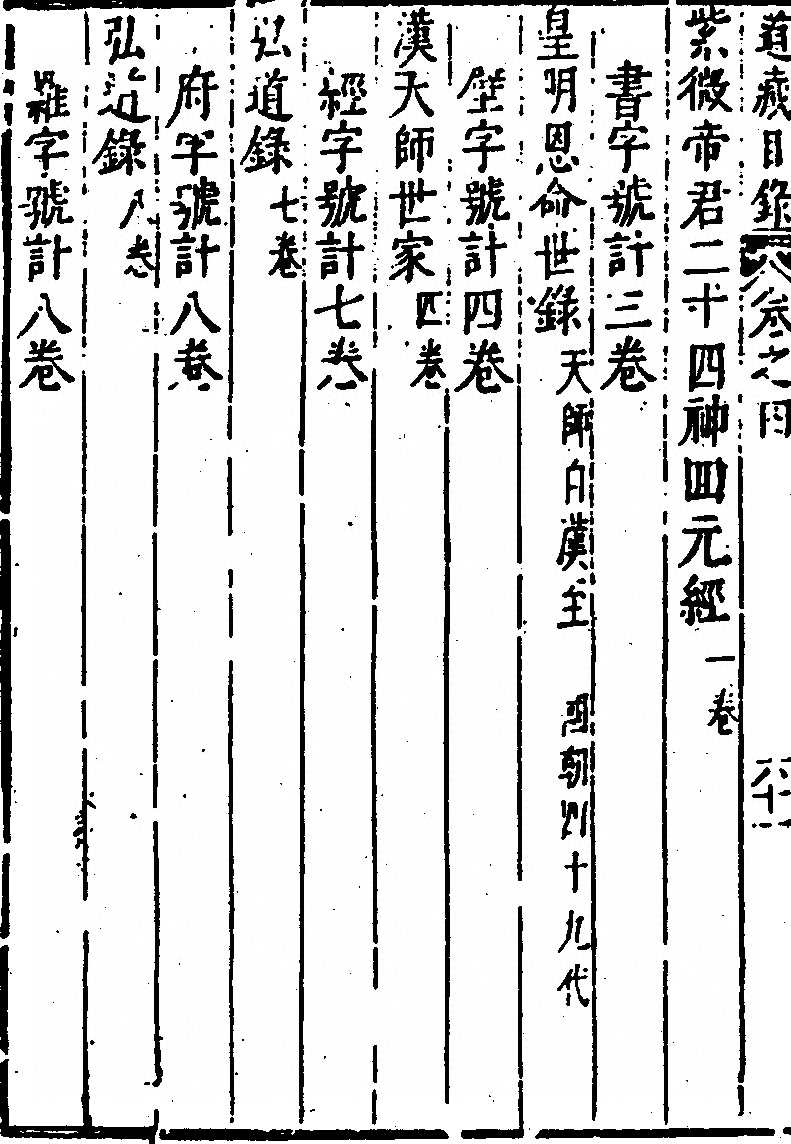 道藏目錄 卷之四 六十一
紫微帝君二十四神回元經 一卷
書字號計三卷
皇明恩命世錄 天師自漢至 國朝四十九代
壁字號計四卷
漢天師世家 四卷
經字號計七卷
弘道錄 七卷
府字號計八卷
弘道錄 八卷
羅字號計八卷